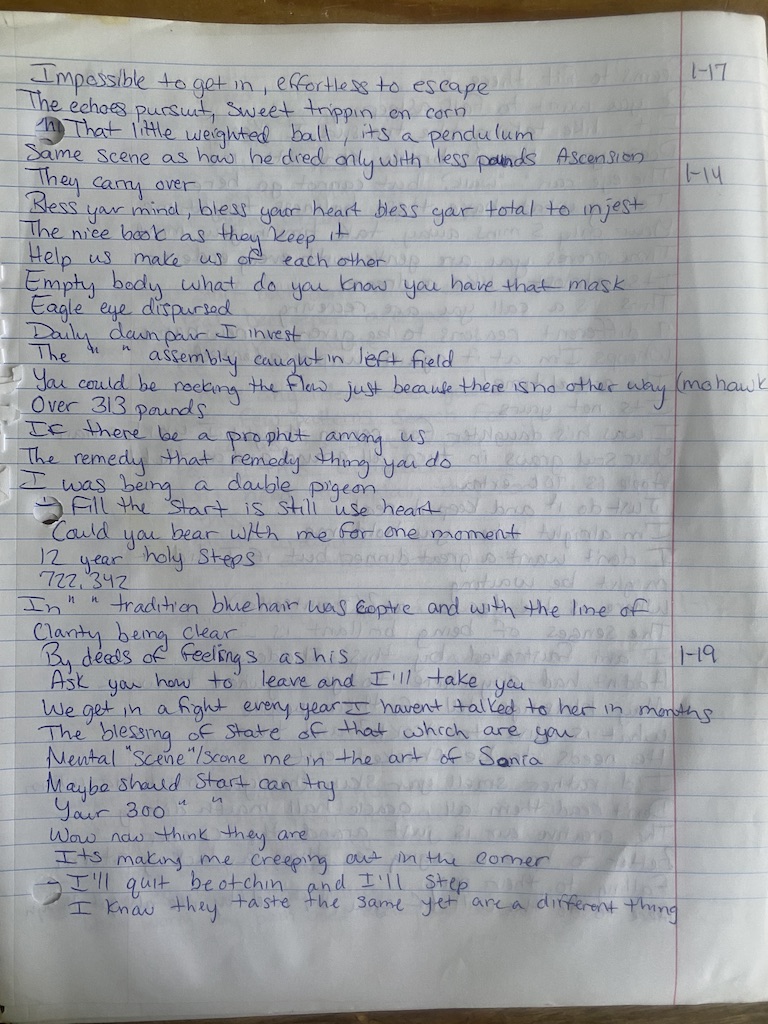 Impossible to get in, effortless to escape 1-17
The echoes pursuit, sweet trippin on corn
That little weighted ball, its a pendulum
Same scene as how he died only with less pounds Ascension
They carry over 1-14
Bless your mind, bless your heart bless your total to injest
The nice book as they keep it
Help us make us of each other
Empty body what do you know you have that mask
Eagle eye dispursed
Daily downpour I invest
The " " assembly caught in left field
You could be rocking the flow just because there is no other way (mohawk
Over 313 pounds
If there be a prophet among us
The remedy that remedy thing you do
I was being a double pigeon
Fill the start is still use heart
Could you bear with me for one moment
12 year holy steps
722,342
In " " tradition blue hair was and with the line of
Clarity being clear
By deeds of feelings as his 1-19
Ask you how to leave and I'll take you
We get in a fight every year I havent talked to her in months
The blessing of state of that which are you
Mental "Scene"/Scone me in the art of Sonia
Maybe should start can try
Your 300 " "
Wow now think they are
Its making me creeping out in the corner
I'll quit beotchin and I'll step
I know they taste the same yet are a different thing